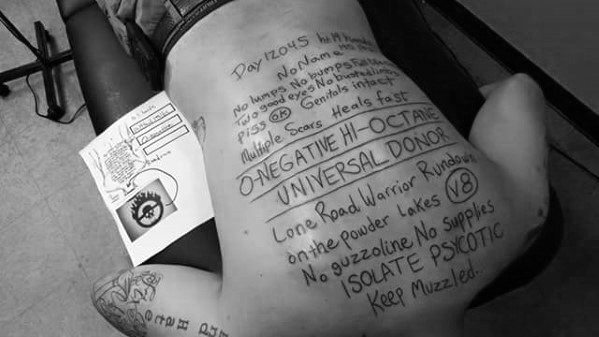 Day 12045 ht 10 hands
No Name
No lumps No bumps Full life
Two good eyes No busted limbs
Piss OK Genitals intact
Multiple Scars Heals fast
O-NEGATIVE HI-OCTANE
UNIVERSAL DONOR
Lone Road Warrior Rundown
on the powder lakes V8
No guzzoline No supplies
ISOLATE PSYCOTIC
Keep Muzzled.